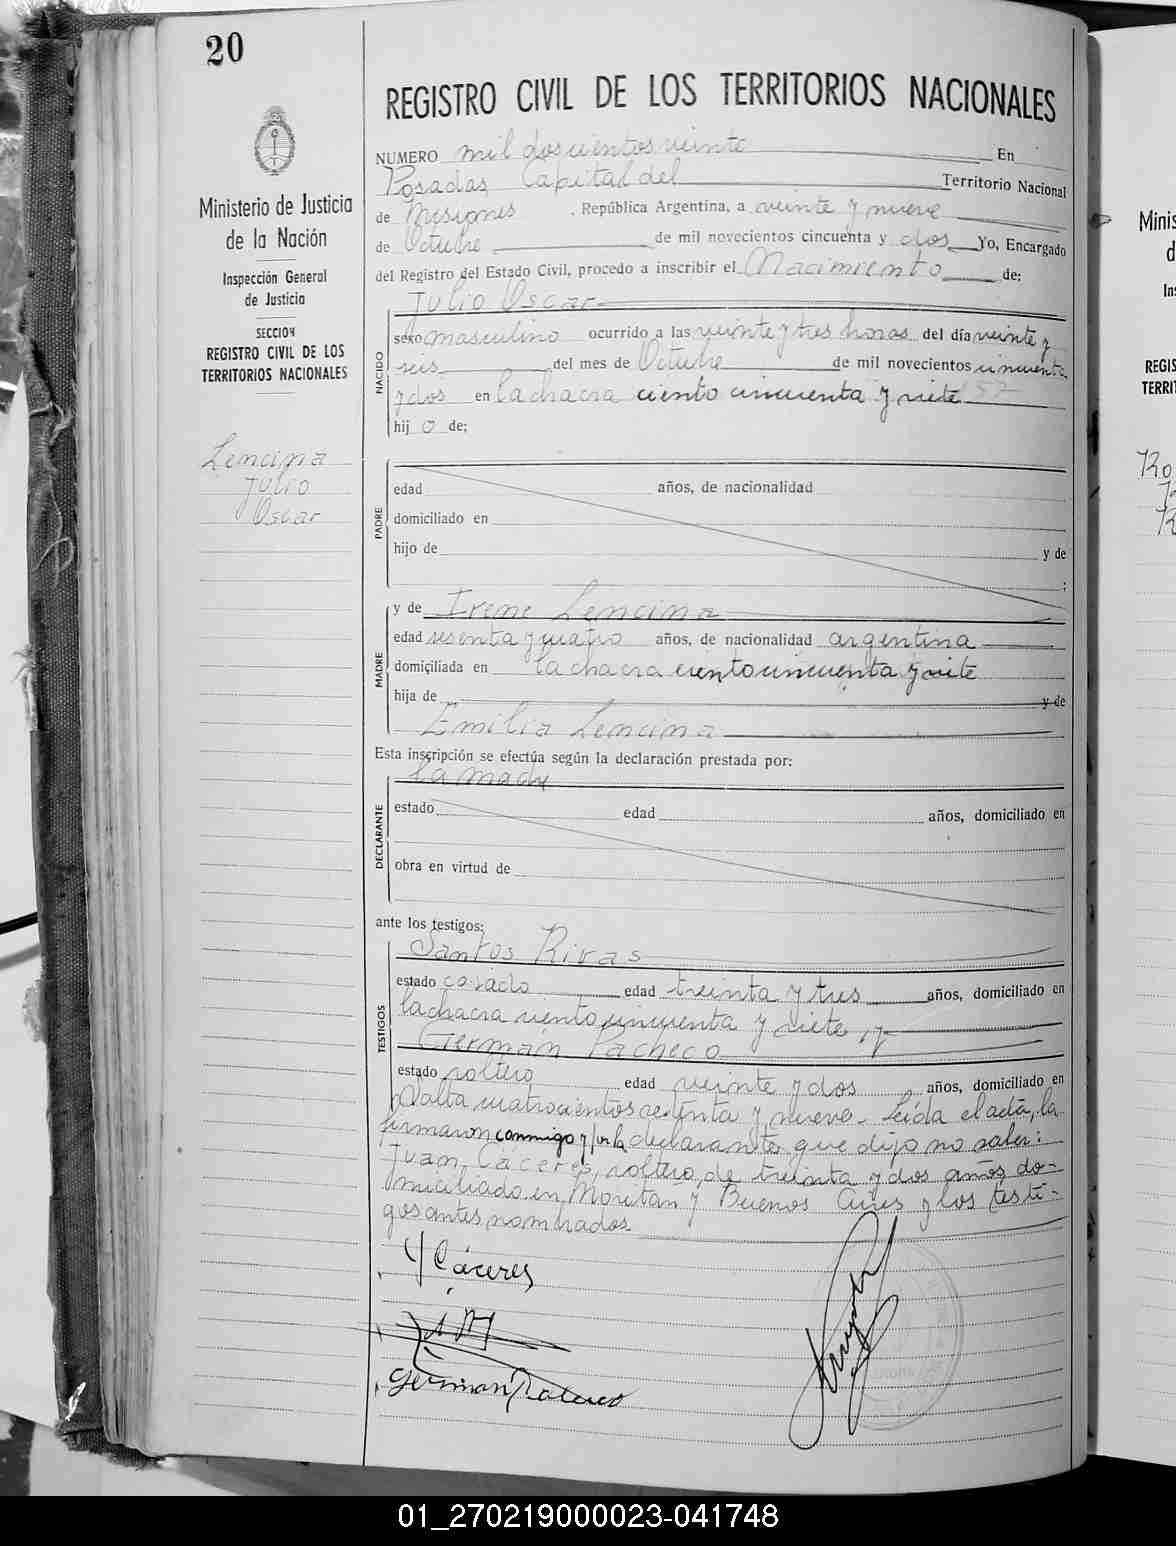 20
REGISTRO CIVIL DE LOS TERRITORIOS NACIONALES
Ministerio de Justicia
de la Nación
Inspección General
de Justicia
SECCION
REGISTRO CIVIL DE LOS
TERRITORIOS NACIONALES
Lencina
Julio
Oscar
NUMERO mil doscientos veinte En
Posadas, Capital del Territorio Nacional
de Misiones, República Argentina, a veinte y nueve
de Octubre de mil novecientos cincuenta y dos Yo, Encargado
del Registro del Estado Civil, procedo a inscribir el Nacimiento de:
Julio Oscar
NACIDO
sexo masculino ocurrido a las veinte y tres horas del día veinte y
seis del mes de Octubre de mil novecientos cincuenta
y dos en la chacra ciento cincuenta y siete 157
hij o de;
PADRE
edad años, de nacionalidad
domiciliado en
hijo de y de
;
MADRE
y de Irene Lencina
edad sesenta y cuatro años, de nacionalidad argentina
domiciliada en la chacra ciento cincuenta y siete
hija de y de
Emilia Lencina
Esta inscripción se efectúa según la declaración prestada por:
la madre
DECLARANTE
estado edad años, domiciliado en
obra en virtud de
ante los testigos:
TESTIGOS
Santos Rivas
estado casado edad treinta y tres años, domiciliado en
la chacra ciento cincuenta y siete, y
Germán Pacheco
estado soltero edad veinte y dos años, domiciliado en
Salta cuatrocientos setenta y nueve. Leída el acta, la
firmaron conmigo y por la declarante que dijo no saber:
Juan Cáceres, soltero, de treinta y dos años do-
miciliado en Moritán y Buenos Aires y los testi-
gos antes nombrados.
J Cáceres
German Pacheco
Minis
d
Ins
REGIS
TERRIT
01_270219000023-041748